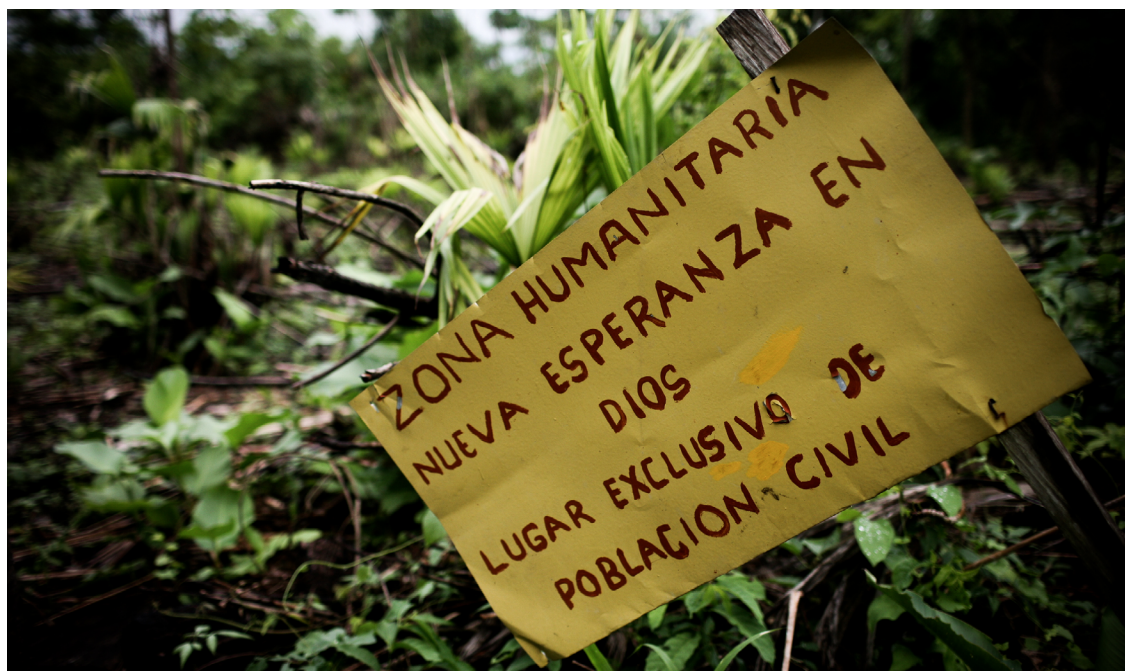 ZONA HUMANITARIA
NUEVA ESPERANZA EN
DIOS
LUGAR EXCLUSIVO DE
POBLACION CIVIL